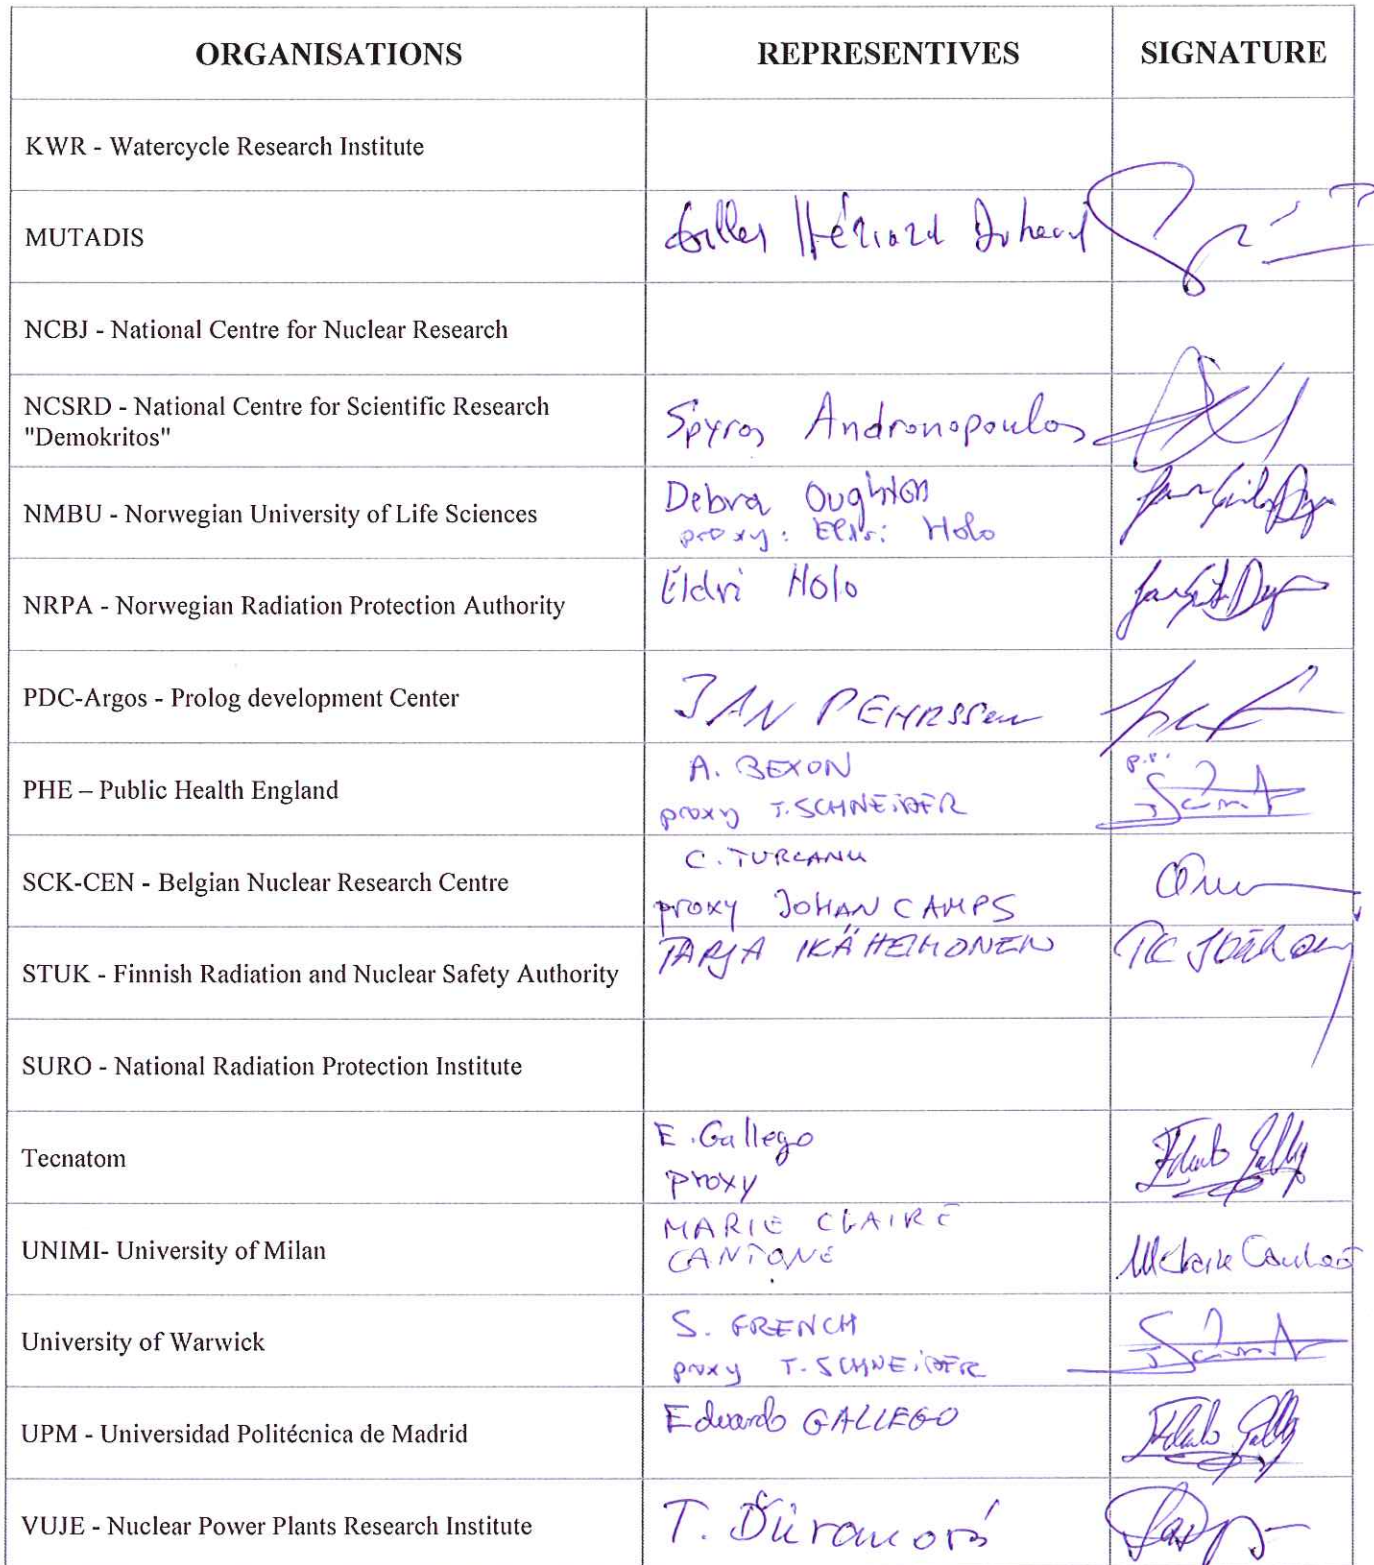 ORGANISATIONS REPRESENTIVES SIGNATURE
KWR - Watercycle Research Institute
MUTADIS Gilles Hériard Dubreuil
NCBJ - National Centre for Nuclear Research
NCSRD - National Centre for Scientific Research
"Demokritos"
Spyros Andronopoulos
NMBU - Norwegian University of Life Sciences
Debra Oughton
proxy: Eldri Holo
NRPA - Norwegian Radiation Protection Authority Eldri Holo
PDC-Argos - Prolog development Center JAN PEHRSSON
PHE – Public Health England
A. BEXON
proxy T. SCHNEIDER
p.p.
SCK-CEN - Belgian Nuclear Research Centre
C. TURCANU
proxy JOHAN CAMPS
STUK - Finnish Radiation and Nuclear Safety Authority TARJA IKÄHEIMONEN
SURO - National Radiation Protection Institute
Tecnatom
E. Gallego
proxy
UNIMI- University of Milan
MARIE CLAIRE
CANTONE
University of Warwick
S. FRENCH
proxy T. SCHNEIDER
UPM - Universidad Politécnica de Madrid Eduardo GALLEGO
VUJE - Nuclear Power Plants Research Institute T. Ďúranová